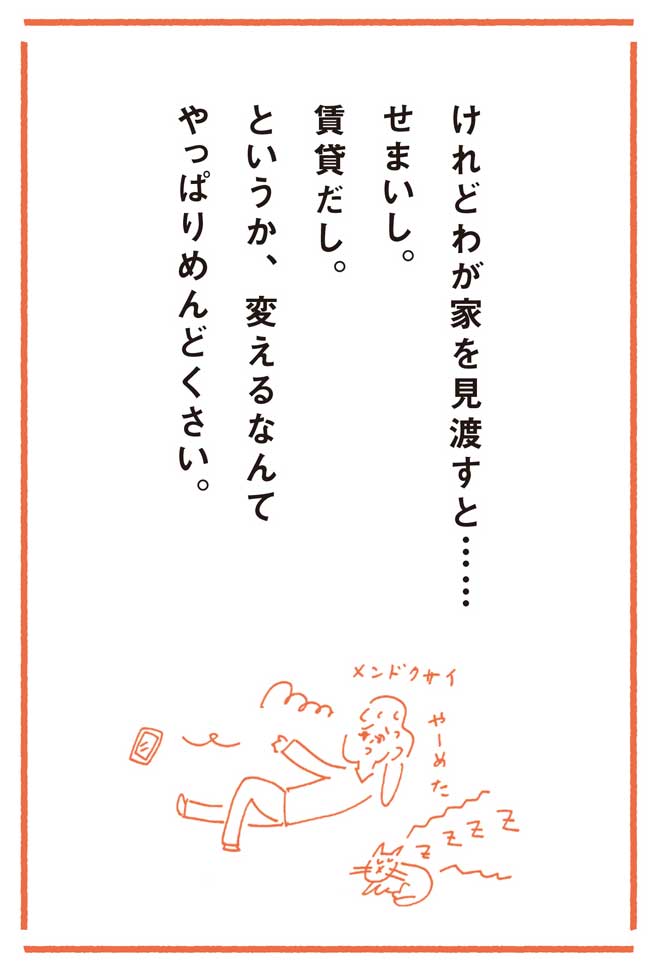 けれどわが家を見渡すと……
せまいし。
賃貸だし。
というか、変えるなんて
やっぱりめんどくさい。
メンドクサイ
やーめた
zzzz